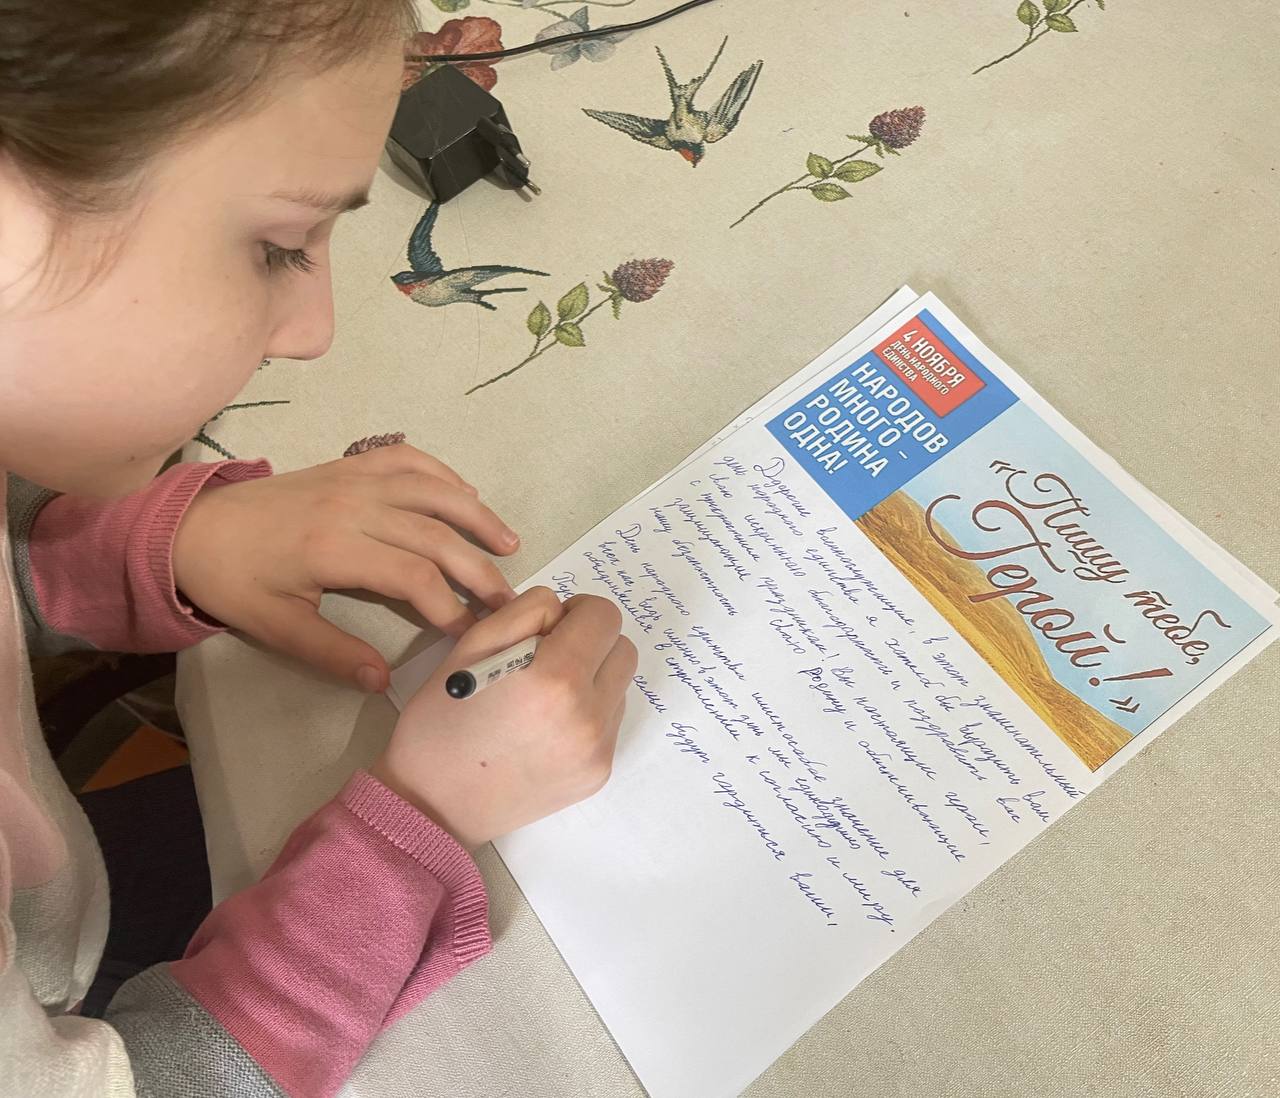 4 НОЯБРЯ
ДЕНЬ НАРОДНОГО
ЕДИНСТВА
НАРОДОВ
МНОГО –
РОДИНА
ОДНА!
«Пишу тебе,
Герой!»
Дорогие военнослужащие, в этот знаменательный
день народного единства я хотел бы выразить вам
свою искреннюю благодарность и поздравить вас
с прекрасным праздником! Вы настоящие герои,
защищающие свою Родину и обеспечивающие
нашу безопасность
День народного единства имеет особое значение для
всех нас, ведь именно в этот день мы
объединяемся в стремлении к согласию и миру.
семьи будут гордится вами,